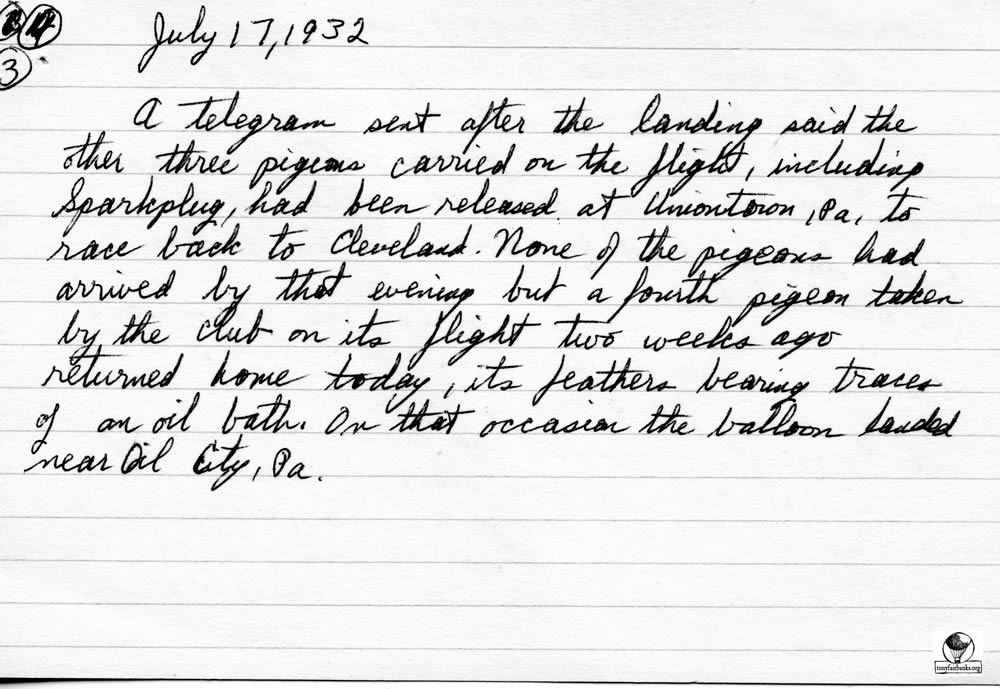 July 17, 1932
3
A telegram sent after the landing said the
other three pigeons carried on the flight, including
Sparkplug, had been released at Uniontown, Pa, to
race back to Cleveland. None of the pigeons had
arrived by that evening but a fourth pigeon taken
by the club on its flight two weeks ago
returned home today, its feathers bearing traces
of an oil bath. On that occasion the balloon landed
near Oil City, Pa.
tonyfairbanks.org